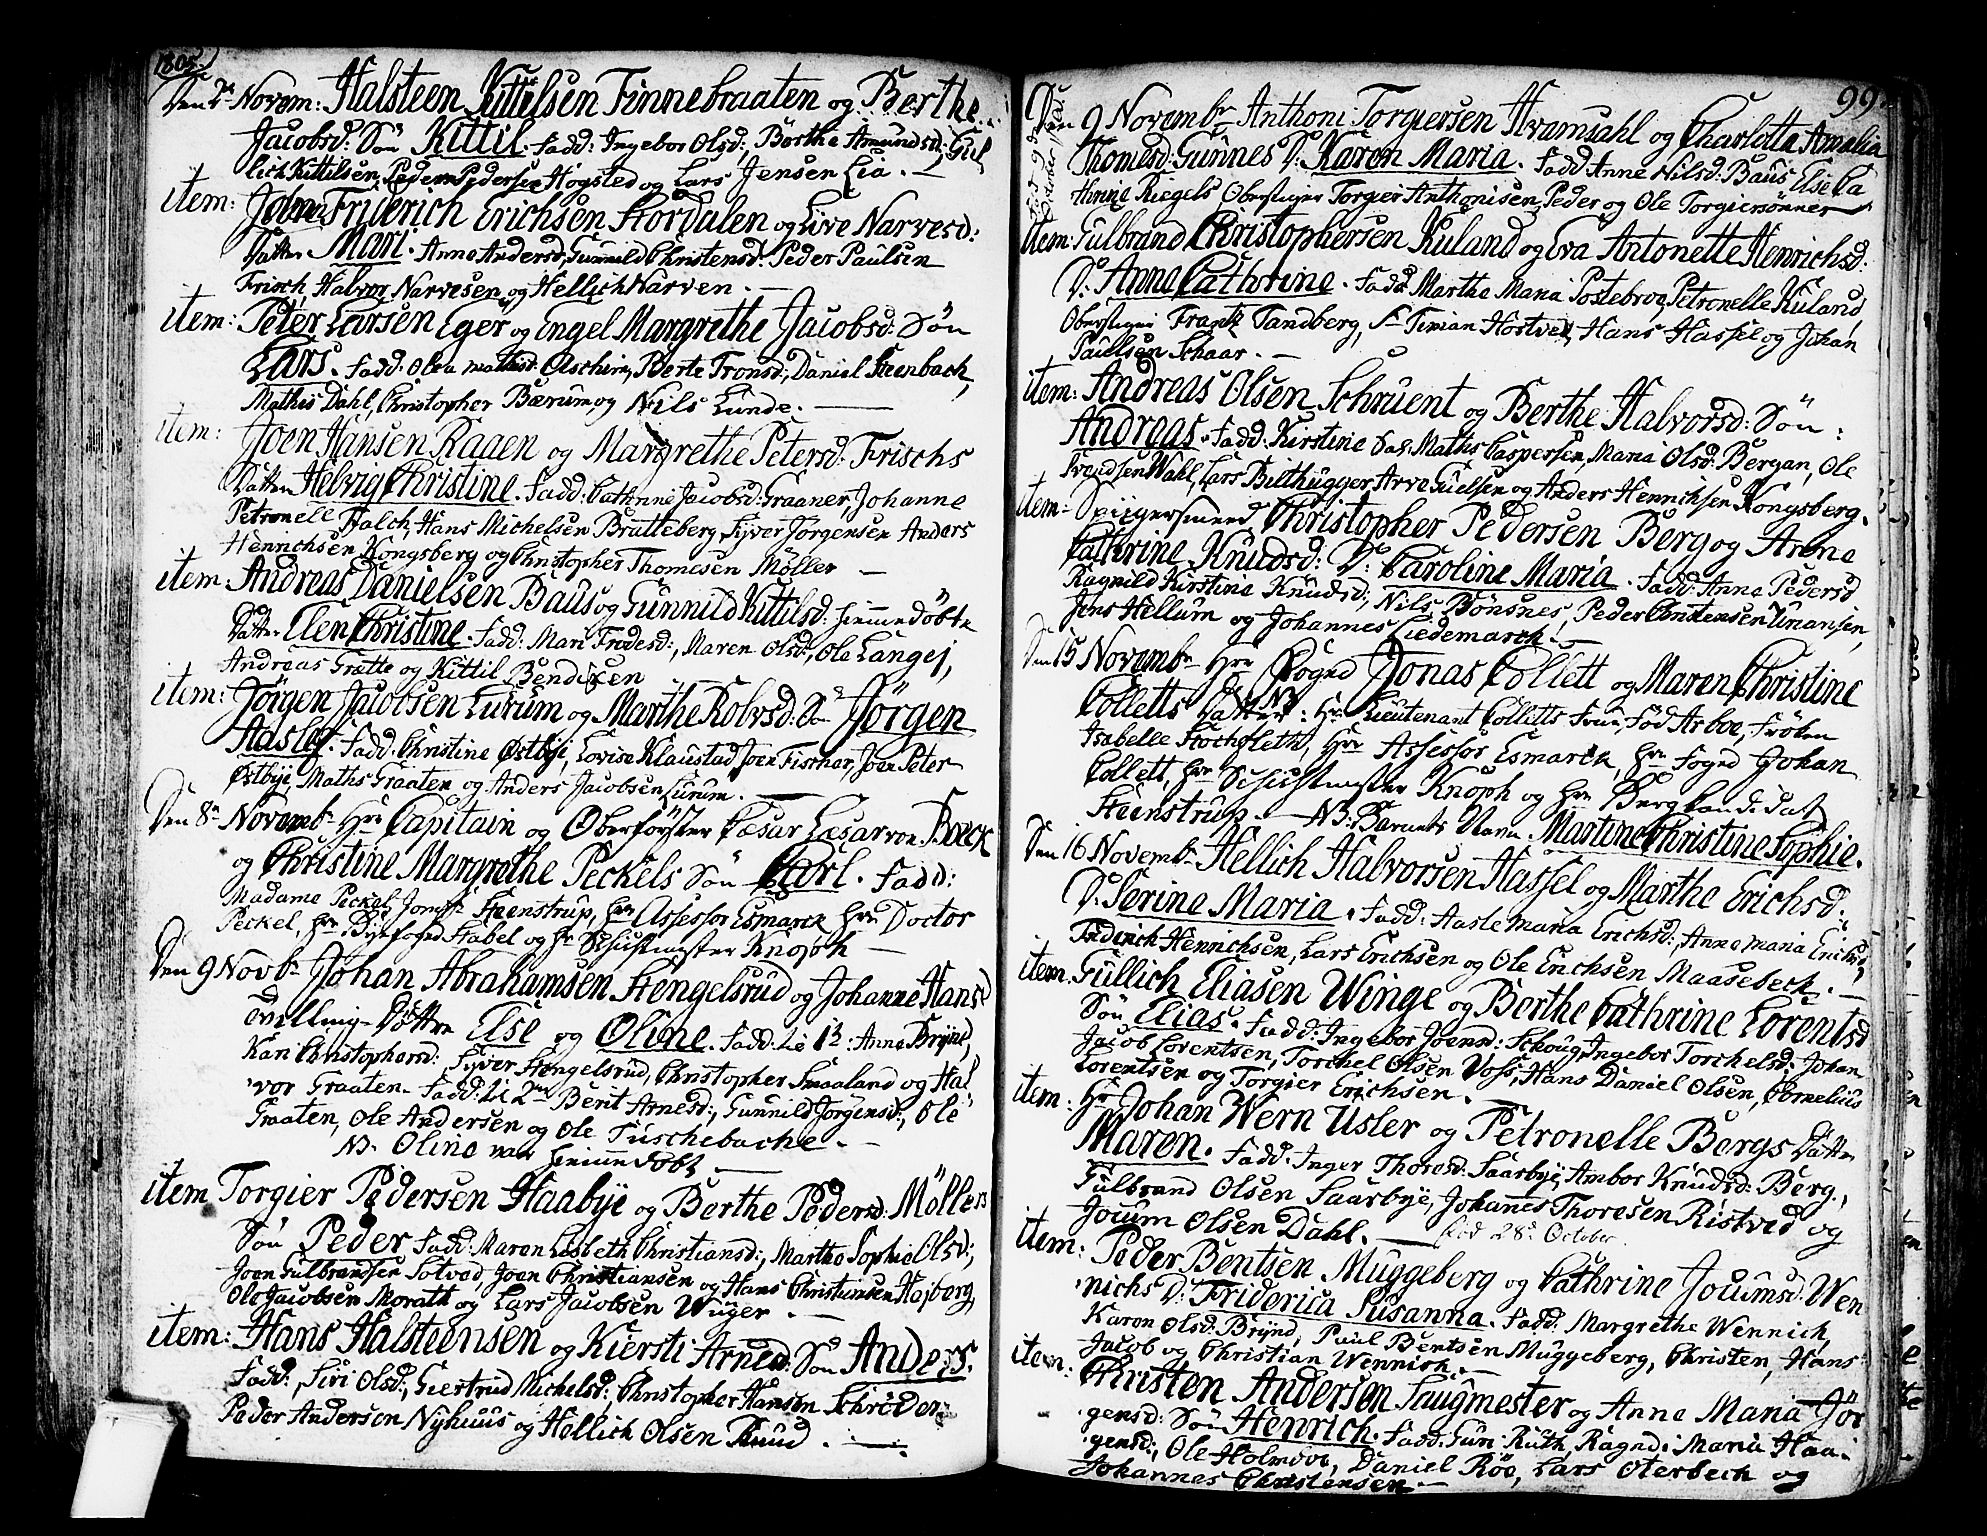 1805
Den 2n Novem: Halsteen Kittelsen Finnebraaten og Berthe
Jacobsd: Søn Kittil. Fadd: Ingebor Olsd:, Børthe Amundsd:, Gul
lich Kittilsen, Peder Pedersen Høgsted og Lars Jensen Lia. —
item: John Friderich Erichsen Stordalen og Live Narvesd:
Datter Mari. Anne Andersd, Gunnild Christensd: Peder Paulsen
Frisch Halvor Narvesen og Hellich Narven. —
item: Peter Larsen Eger og Engel Margrethe Jacobsd: Søn
Lars. Fadd: Olea Mathisd: Olschin, Berte Tronsd:, Daniel Steenbach,
Mathis Dahl, Christopher Bærum, og Nils Lunde. —
item: Joen Hansen Raaen og Margrethe Petersd: Frischs
Datter Helvig Christine. Fadd: Cathrine Jacobsd: Graaner, Johanne
Petronell Falch, Hans Michelsen Bratteberg, Syver Jørgensen Anders
Henrichsen Kongsberg og Christopher Thomesen Møller —
item Andreas Danielsen Baus og Gunnild Kittilsd: hiemmedøbte
Datter Elen Christine. Fadd: Mari Fredesd:, Maren Olsd:, Ole Langej,
Andreas Grætte og Kittil Bendixen
item: Jørgen Jacobsen Lurum og Marthe Rolvsd: Søn Jørgen
Aaslef. Fadd: Christine Østbye, Lovise Klaustad, Joen Fischer, Joen Peter
Østbye, Maths Graaten og Anders Jacobsen Lurum. —
Den 8n Novembr Hrr Capitain og Oberførster Cæsar Læsar von Boeck
og Christine Margrethe Peckels Søn Carl. Fadd:
Madame Peckel, Jomfr Steenstrup, Hrr Assessor Esmarck Hrr Doctor
Peckel, Hrr Byefoged Stabel og Hr Schichtmester Knoph —
Den 9 Novbr Johan Abrahamsen Stengelsrud og Johanne Hansd
Tvilling-Døttre Else og Oline. Fadd: til 1te: Anne Brynd,
Kari Christophersd: Syver Stengelsrud, Christopher Smaaland og Hal
vor Graaten. Fadd: til 2den Berit Arnesd:, Gunnild Jørgensd:, Ole
Graaten, Ole Andersen og Ole Tuschebache. —
NB. Oline var hiemmedøbt. —
item Torgier Pedersen Haabye og Berthe Pedersd: Møllers
Søn Peder Fadd: Maren Lisbeth Christiansd:, Marthe Sophie Olsd:,
Joen Gulbrandsen Sotved, Joen Christiansen og Hans Christiansen Hajberg,
Ole Jacobsen Morath og Lars Jacobsen Wüger. —
item: Hans Halsteensen og Kiersti Arnesd: Søn Anders.
Fadd:, Siri Olsd:, Giertrud Michelsd:, Christopher Hansen Schrøder
Peder Andersen Nyhuus og Hellich Olsen Ruud. —
99
Den 9 Novembr Anthoni Torgiersen Hvamsahl og Charlotta Amalia
Thomesd: Gunnes D: Karen Maria. Fadd: Anne Nilsd: Baus Else Ca
thrine Riegels Oberstiger Torgier Anthonisen, Peder og Ole Torgiersønner
item: Gulbrand Christophersen Ruland og Eva Antonette Henrichsd:
D: Anne Cathrine. Fadd: Marthe Maria Postebroe, Petronelle Ruland,
Oberstiger Frantz Tandberg, Sr Timian Hostvet, Hans Hassel og Johan
Paulsen Schaar. —
item: Andreas Olsen Schruent og Berthe Halvorsd: Søn:
Andreas. Fadd: Kirstine Dal, Maths Caspersen, Maria Olsd: Bergan, Ole
Trondsen Wahl, Lars Bilthugger Arve Gielsen og Anders Henrichsen Kongsberg.
item: Spiigersmeed Christopher Pedersen Berg og Anne
Cathrine Knudsd: D: Caroline Maria. Fadd: Anne Pedersd
Ragnild Kirstine Knudsd:, Nils Bønsnes, Peder Christensen Umansjen,
Jens Hellum og Johannes Liedemarck. —
Den 15 Novembr Hrr Fogd Jonas Collett og Maren Christine
Colletts Datter: NB Hr Lieutenant Colletts Frue, Fød Arboe, Frøken
Isabelle Stochfleth, Hrr Assessor Esmarck, Hrr Fogd Johan
Collett, Hrr Schichtmester Knoph og Hrr Bergkandidat
Steenstrup. — NB: Barnets Navn. Martine Christine Sophie.
Den 16 Novembr Hellich Halvorsen Hassel og Marthe Erichsd:
D: Serine Maria. Fadd: Aasle Maria Erichsd:, Anne Maria Erichsd,
Friderich Henrichsen, Lars Erichsen og Ole Erichsen Maasebech. —
item. Gullich Eliasen Winge og Berthe Cathrine Lorentsd
Søn Elias. Fadd: Ingebor Joensd: Schoug, Ingebor Torchelsd: Johan
Jacob Lorentsen, Torchel Olsen Voss, Hans Daniel Olsen, Cornelius
Lorentsen og Torgier Erichsen. —
item: Hr Johan Wern Usler og Petronelle Bergs Datter
Maren. Fadd: Inger Thoresd: Saarbye, Ambor Knudsd: Berg,
Gulbrand Olsen Saarbye, Johannes Thoresen Ristved og
Jocum Olsen Dahl. — fød 28de October.
item: Peder Bentsen Muggeberg og Cathrine Jocumsd: Wen
nichs D: Friderica Susanna. Fadd: Margrethe Wennich,
Karen Olsd: Brynd, Paul Bentsen Muggeberg, Christen, Hans
Jacob og Christian Wennich. —
item: Christen Andersen Saugmester og Anne Maria Jør
gensd: Søn Henrich. Fadd: Guri Ruth, Ragnd: Maria Haa
gensd:, Ole Holmboe, Daniel Røe, Lars Oterbech og
Johannes Christensen. —